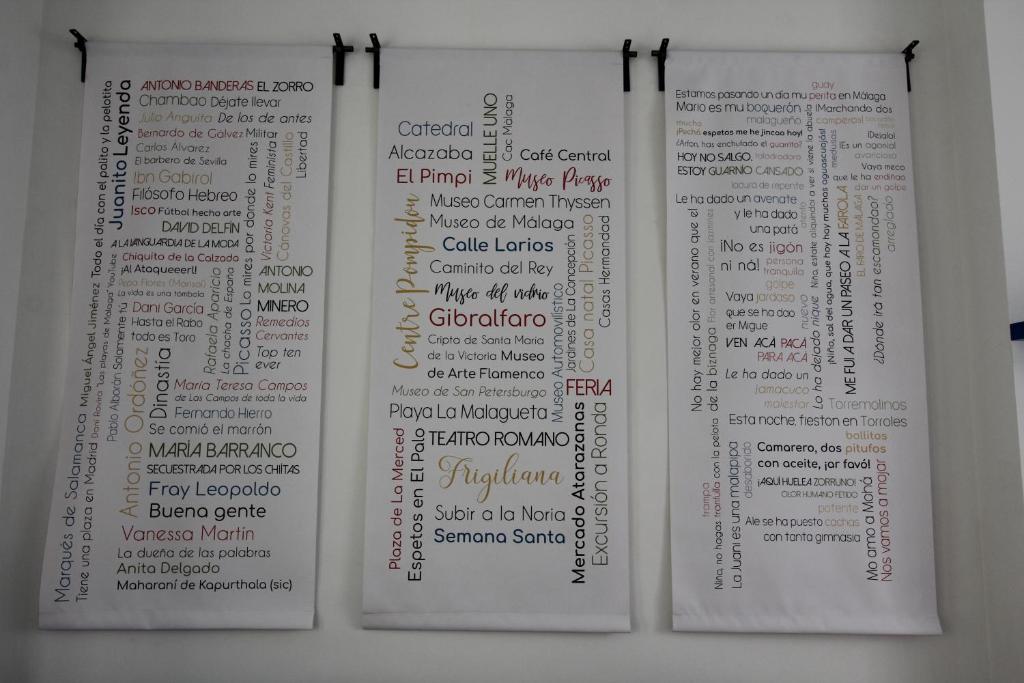 ANTONIO BANDERAS EL ZORRO
Chambao Déjate llevar
Julio Anguita De los de antes
Bernardo de Gálvez Militar
Carlos Álvarez
El barbero de Sevilla
Ibn Gabirol
Filósofo Hebreo
Isco Fútbol hecho arte
DAVID DELFÍN
A LA VANGUARDIA DE LA MODA
Chiquito de la Calzada
¡Al Ataqueeerl!
Pepa Flores (Marisol)
La vida es una tómbola
Dani García
Hasta el Rabo
todo es Toro
Juanito Leyenda
Miguel Ángel Jiménez Todo el día con el palito y la pelotita
Marqués de Salamanca
Tiene una plaza en Madrid
Dani Rovira "Las playas de Málaga" YouTube
Pablo Alborán Solamente tú
Antonio Ordóñez
Dinastía
Rafaela Aparicio
La chacha de España
Picasso Lo mires por donde lo mires
Victoria Kent Feminista
Cánovas del Castillo
Libertad
ANTONIO
MOLINA
MINERO
Remedios
Cervantes
Top ten
ever
María Teresa Campos
de Las Campos de toda la vida
Fernando Hierro
Se comió el marrón
MARÍA BARRANCO
SECUESTRADA POR LOS CHIÍTAS
Fray Leopoldo
Buena gente
Vanessa Martín
La dueña de las palabras
Anita Delgado
Maharaní de Kapurthala (sic)
Catedral
Alcazaba
El Pimpi
MUELLE UNO
Cac Málaga
Café Central
Museo Picasso
Museo Carmen Thyssen
Museo de Málaga
Calle Larios
Caminito del Rey
Museo del vidrio
Gibralfaro
Centre Pompidou
Cripta de Santa María
de la Victoria Museo
de Arte Flamenco
Museo de San Petersburgo
Museo Automovilístico
Jardines de La Concepción
Casa natal Picasso
Casas Hermandad
FERIA
Playa La Malagueta
TEATRO ROMANO
Frigiliana
Subir a la Noria
Semana Santa
Plaza de La Merced
Espetos en El Palo
Mercado Atarazanas
Excursión a Ronda
guay
Estamos pasando un día mu perita en Málaga
Mario es mu boquerón
malagueño
¡Marchando dos
camperos!
mucho
¡Pechá espetos me he jincao hoy!
¡Arfon, has enchulado el guarrito!
taladradora
HOY NO SALGO,
ESTOY GUARNÍO CANSADO
¡Dejalo!
¡Es un agonía!
avaricioso
Vaya meco
que le ha endiñao
dar un golpe
locura de repente
Le ha dado un avenate
y le ha dado
una patá
¡No es jigón
ni ná!
persona
tranquila
golpe
Vaya jardaso
que se ha dao
er Migue
VEN ACÁ PACÁ
PARA ACÁ
Le ha dado un
jamacuco
malestar
No hay mejor olor en verano que el
de la biznaga Flor artesanal con jazmines
Lo ha dejado nique nuevo
Niño, estate aliquindo a ver si viene la abuela
¡Niño, sal del agua, que hoy hay muchas aguascuajás!
medusas
ME FUI A DAR UN PASEO A LA FAROLA
EL FARO DE MÁLAGA
¿Dónde irá tan escamondao?
arreglado
Torremolinos
Esta noche, fieston en Torroles
bollitos
Camarero, dos pitufos
con aceite, ¡ar favó!
¡AQUÍ HUELE A ZORRUNO!
OLOR HUMANO FÉTIDO
potente
Ale se ha puesto cachas
con tanta gimnasia
trampa
Niño, no hagas tranfulla con la pelota
La Juani es una malapipa
desaborida
Mo amo a Mohá
Nos vamos a mojar